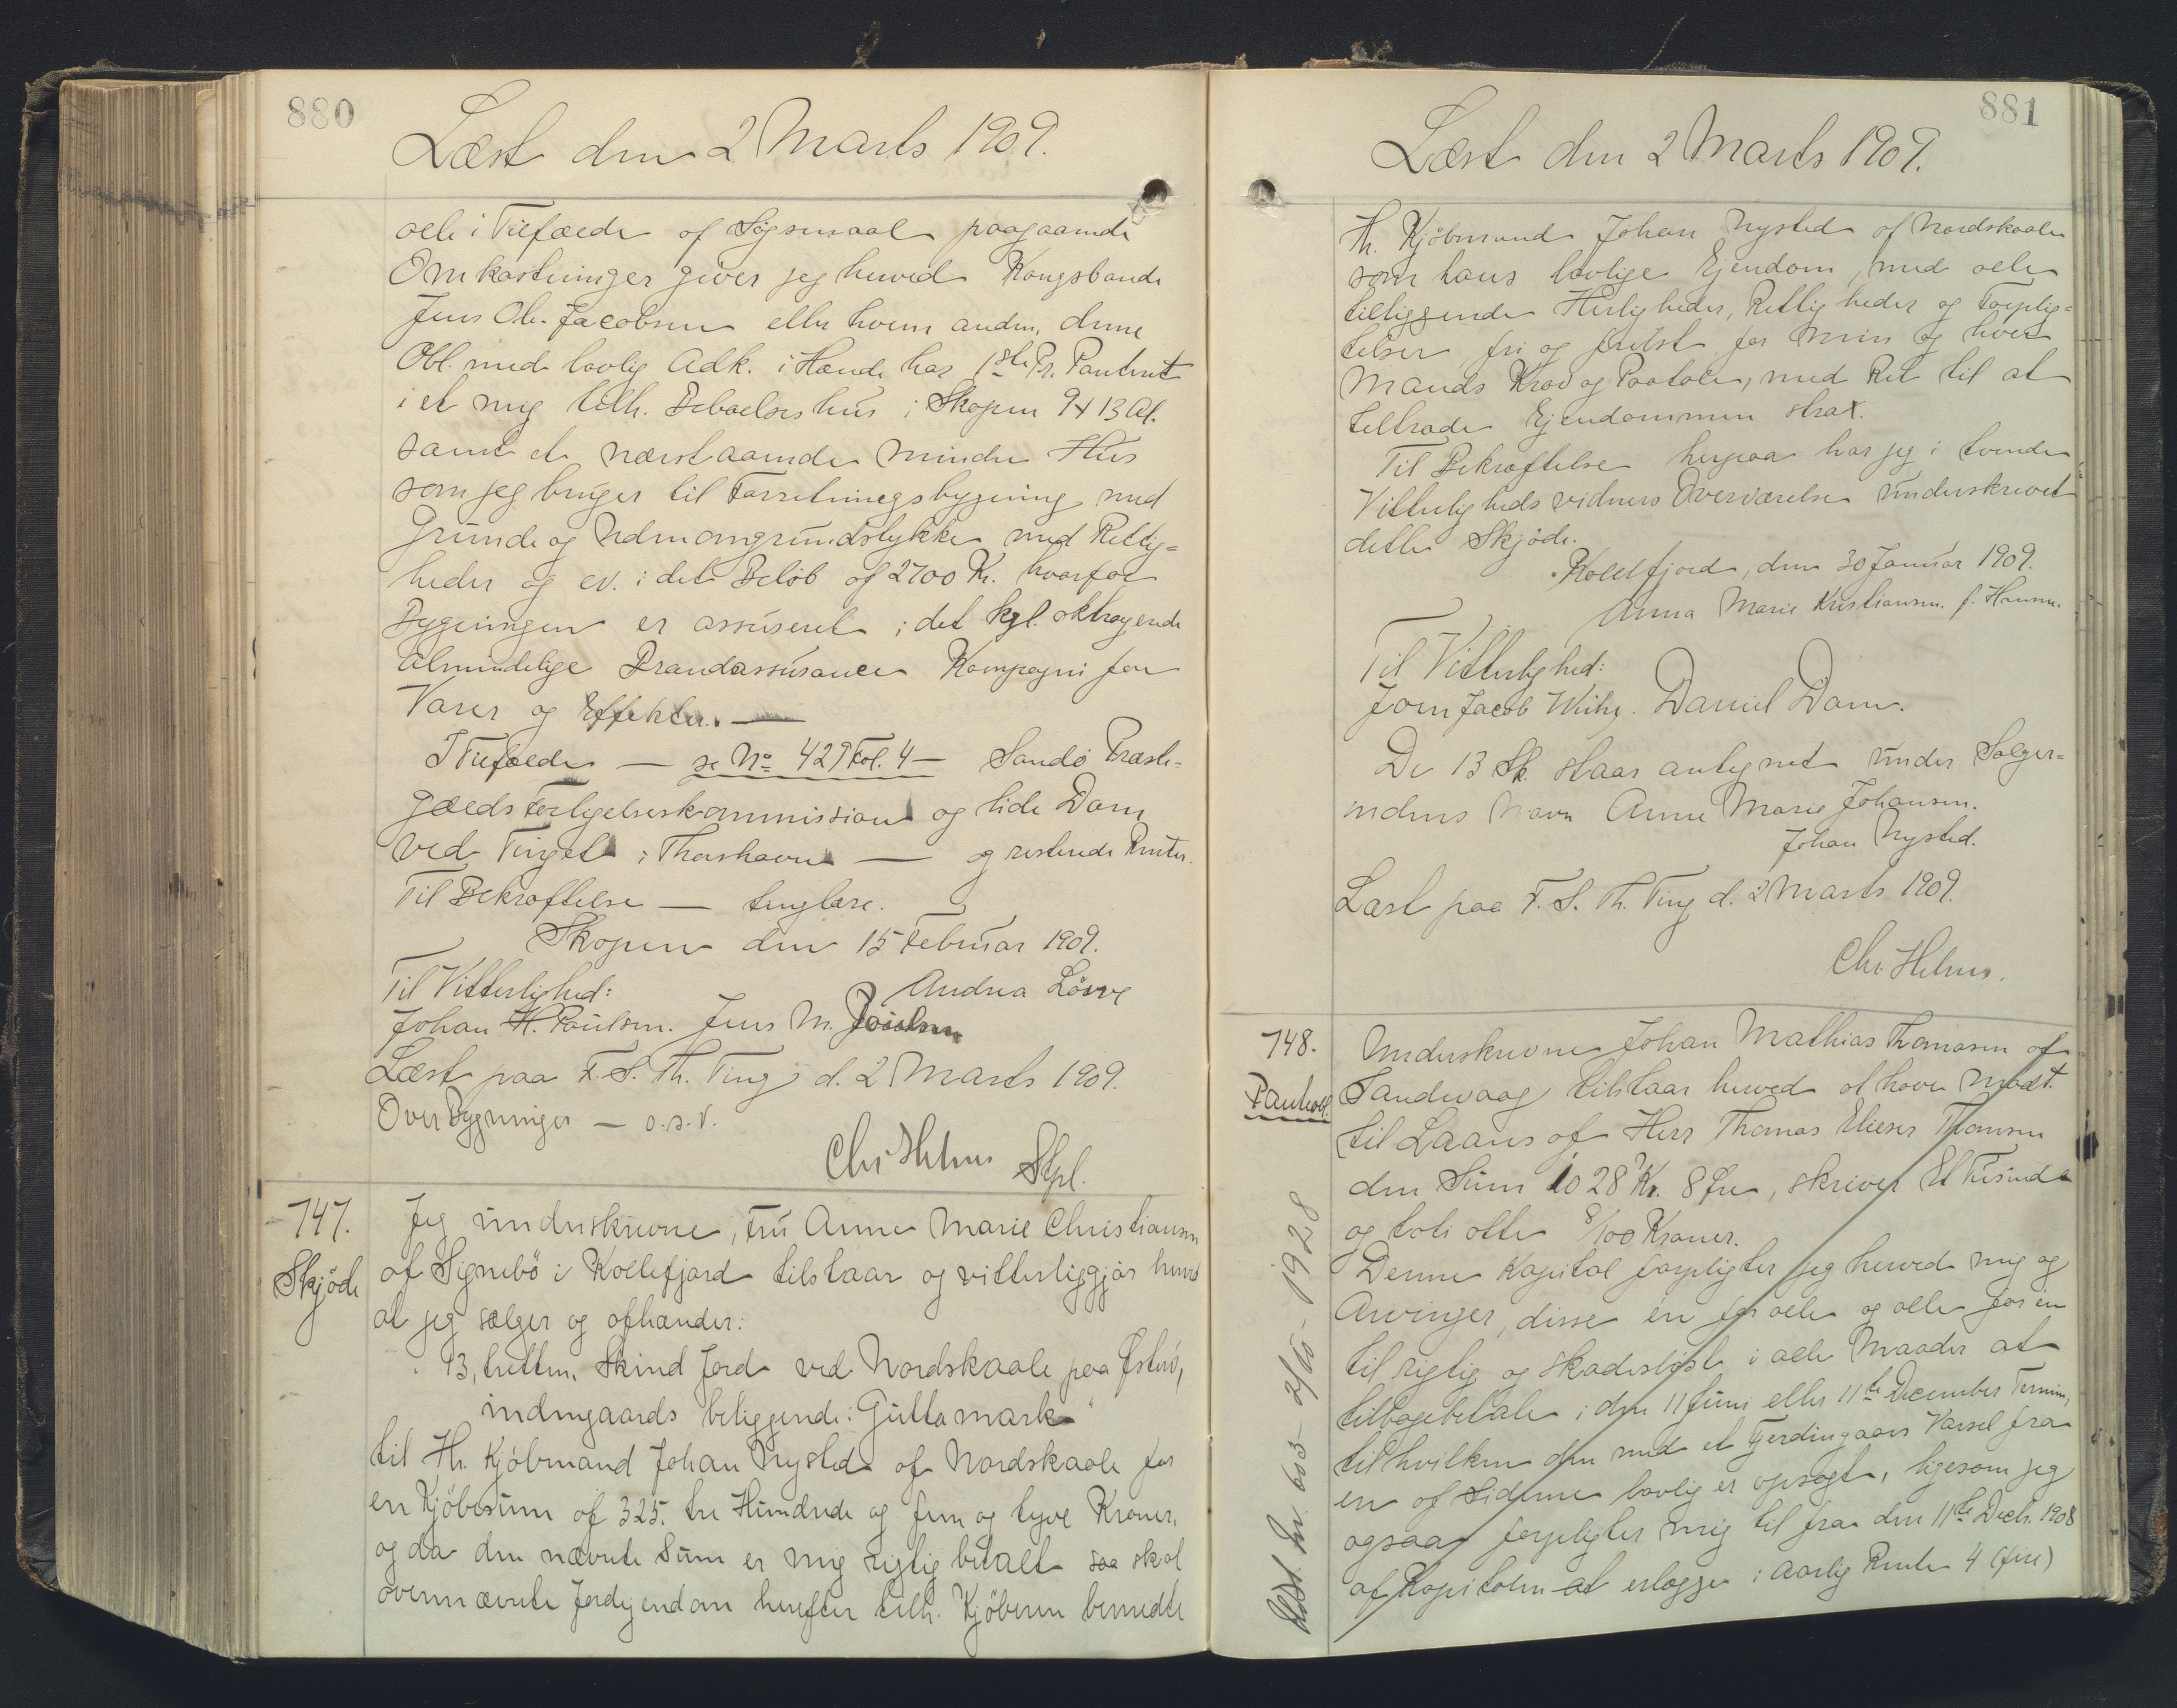 880
Læst den 2 Marts 1909.
alle i Tilfælde af Søgsmaal paagaaende
Omkostninger giver jeg herved Kongsbonde
Jens Ole Jacobsen eller hvem anden, denne
Obl. med lovlig Adk. i Hænde har 1ste Pr. Panteret
i et mig tilh. Beboelseshus i Skopen 9 x 13 Al.
samt et nærstaaende mindre Hus
som jeg bruger til Forretningsbygning med
Grunde og Udmarksgrundstykke med Rettig=
heder og ev. i det Beløb af 2700 Kr. hvorfor
Bygningen er assureret i det kgl. oktrojerede
almindelige Brandassurance Kompagni for
Varer og Effekter. —
I Tilfælde — se No 429 Fol. 4 — Sandø Præste-
gælds Forligelseskommission og lide Dom
ved Tinget i Thorshavn — og resterende Renter.
Til Bekræftelse — tinglæse.
Skopen den 15 Februar 1909.
Til Vitterlighed: Andrea Løwe
Johan H. Paulsen. Jens M. Joensen
Læst paa F. S. Th. Ting d. 2 Marts 1909.
Over Bygninger — o.s.v.
Chr. Helms Stpl.
747.
Skjøde
Jeg underskrevne, Fru Anne Marie Christiansen
af Signebø i Kollefjord tilstaar og vitterliggjør herved
at jeg sælger og afhænder:
13, tretten, Skind Jord ved Nordskaale paa Østerø,
indengaards beliggende: Gutta mark"
til Hr. Kjøbmand Johan Nysted af Nordskaale for
en Kjøbesum af 325. tre Hundrede og fem og tyve Kroner,
og da den nævnte Sum er mig rigtig betalt saa skal
ovennævnte Jordejendom herefter tilh. Kjøberen bemeldte
881
Læst den 2 Marts 1909.
Hr. Kjøbmand Johan Nysted af Nordskaale
som hans lovlige Ejendom, med alle
tilliggende Herligheder, Rettigheder og Forplig=
telser fri og frelst for min og hver
Mands Krav og Paatale, med Ret til at
tiltræde Ejendommen strax.
Til Bekræftelse herpaa har jeg i tvende
Vitterlighedsvidners Overværelse underskrevet
dette Skjøde.
Kollefjord, den 30 Januar 1909.
Anna Marie Kristiansen f. Hansen.
Til Vitterlighed:
Joen Jacob Weihe. Daniel Dam.
De 13 Sk. staar antegnet under Sælger-
indens Navn Anne Marie Johansen.
Johan Nysted.
Læst paa F. S. Th. Ting d. 2 Marts 1909.
Chr. Helms.
748.
Panteobl.
Underskrevne Johan Mathias Thomasen af
Sandevaag tilstaar herved at have modt.
til Laans af Herr Thomas Elieser Thomsen
den Sum 1028 Kr. 8 Øre, skriver Et Tusinde
og tyve otte 8/100 Kroner.
Denne Kapital forpligter jeg herved mig og
Arvinger, disse én for alle og alle for én
til rigtig og skadesløst i alle Maader at
tilbagebetale i den 11 Juni eller 11te December Termin,
til hvilken den med et Fjerdingaars Varsel fra
en af Siderne lovlig er opsagt, ligesom jeg
ogsaa forpligter mig til fra den 11te Decbr. 1908
af Kapitalen at erlægge i aarlig Rente 4 (fire)
Udsl. Ln. 603 - 2/10 - 1928